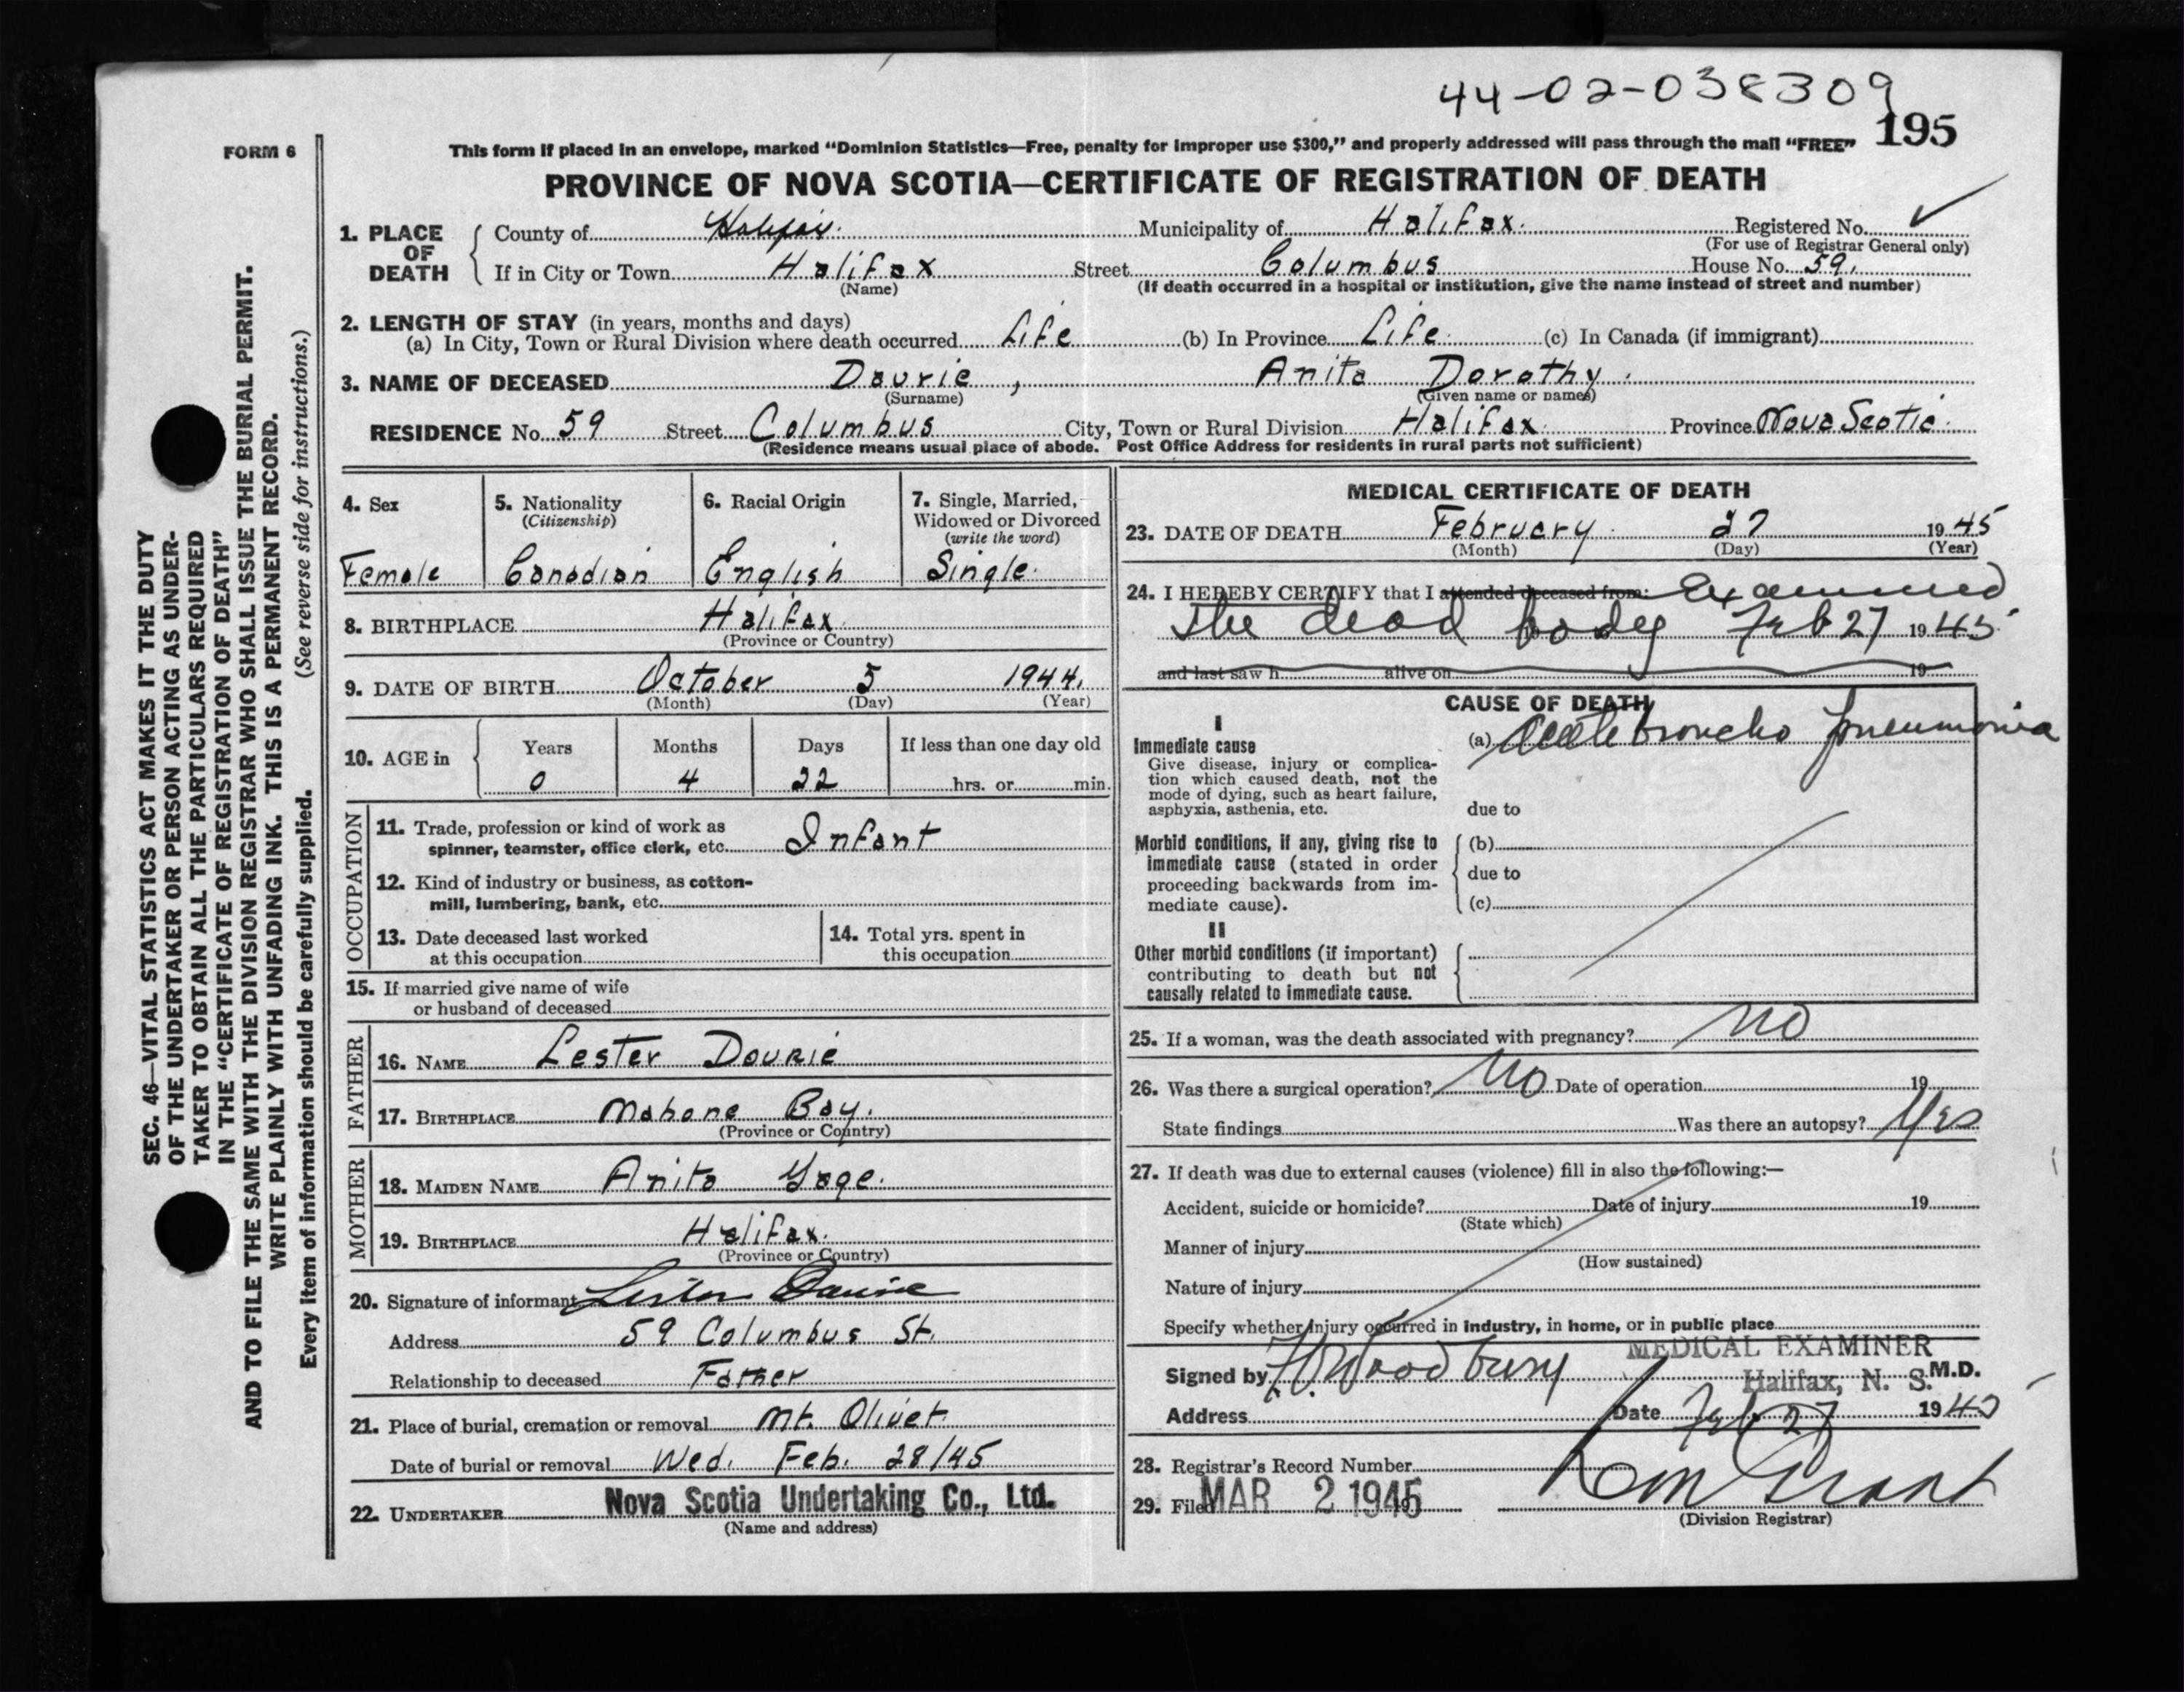 44-02-038309
195
FORM 6
This form if placed in an envelope, marked “Dominion Statistics—Free, penalty for improper use $300,” and properly addressed will pass through the mail “FREE”
PROVINCE OF NOVA SCOTIA—CERTIFICATE OF REGISTRATION OF DEATH
1. PLACE OF DEATH
County of Halifax. Municipality of Halifax. Registered No. ✓
(For use of Registrar General only)
If in City or Town Halifax Street Columbus House No. 59.
(Name) (If death occurred in a hospital or institution, give the name instead of street and number)
2. LENGTH OF STAY (in years, months and days)
(a) In City, Town or Rural Division where death occurred Life (b) In Province Life. (c) In Canada (if immigrant)
3. NAME OF DECEASED Daurie, Anita Dorothy.
(Surname) (Given name or names)
RESIDENCE No. 59 Street Columbus City, Town or Rural Division Halifax. Province Nova Scotia.
(Residence means usual place of abode. Post Office Address for residents in rural parts not sufficient)
4. Sex
Female
5. Nationality
(Citizenship)
Canadian
6. Racial Origin
English
7. Single, Married,
Widowed or Divorced
(write the word)
Single.
8. BIRTHPLACE Halifax
(Province or Country)
9. DATE OF BIRTH October 5 1944.
(Month) (Day) (Year)
10. AGE in
Years Months Days If less than one day old
0 4 22 hrs. or min.
OCCUPATION
11. Trade, profession or kind of work as
spinner, teamster, office clerk, etc. Infant
12. Kind of industry or business, as cotton-
mill, lumbering, bank, etc.
13. Date deceased last worked
at this occupation
14. Total yrs. spent in
this occupation
15. If married give name of wife
or husband of deceased
FATHER
16. NAME Lester Daurie
17. BIRTHPLACE Mahone Bay.
(Province or Country)
MOTHER
18. MAIDEN NAME Anita Gage.
19. BIRTHPLACE Halifax.
(Province or Country)
20. Signature of informant Lester Daurie
Address 59 Columbus St.
Relationship to deceased Father
21. Place of burial, cremation or removal Mt. Olivet.
Date of burial or removal Wed. Feb. 28/45
22. UNDERTAKER Nova Scotia Undertaking Co., Ltd.
(Name and address)
MEDICAL CERTIFICATE OF DEATH
23. DATE OF DEATH February 27 1945
(Month) (Day) (Year)
24. I HEREBY CERTIFY that I attended deceased from: Examined
the dead body Feb 27 1945
and last saw h alive on 19
CAUSE OF DEATH
I
Immediate cause
Give disease, injury or complica-
tion which caused death, not the
mode of dying, such as heart failure,
asphyxia, asthenia, etc.
(a) Acute broncho pneumonia
due to
Morbid conditions, if any, giving rise to
immediate cause (stated in order
proceeding backwards from im-
mediate cause).
(b)
due to
(c)
II
Other morbid conditions (if important)
contributing to death but not
causally related to immediate cause.
25. If a woman, was the death associated with pregnancy? No
26. Was there a surgical operation? No Date of operation 19
State findings Was there an autopsy? Yes
27. If death was due to external causes (violence) fill in also the following:—
Accident, suicide or homicide? Date of injury 19
(State which)
Manner of injury
(How sustained)
Nature of injury
Specify whether injury occurred in industry, in home, or in public place
MEDICAL EXAMINER
Signed by Woodbury Halifax, N. S. M.D.
Address Date Feb 27 1945
28. Registrar's Record Number
29. Filed MAR 2 1945 Grant
(Division Registrar)
SEC. 46—VITAL STATISTICS ACT MAKES IT THE DUTY
OF THE UNDERTAKER OR PERSON ACTING AS UNDER-
TAKER TO OBTAIN ALL THE PARTICULARS REQUIRED
IN THE “CERTIFICATE OF REGISTRATION OF DEATH”
AND TO FILE THE SAME WITH THE DIVISION REGISTRAR WHO SHALL ISSUE THE BURIAL PERMIT.
WRITE PLAINLY WITH UNFADING INK. THIS IS A PERMANENT RECORD.
Every item of information should be carefully supplied. (See reverse side for instructions.)